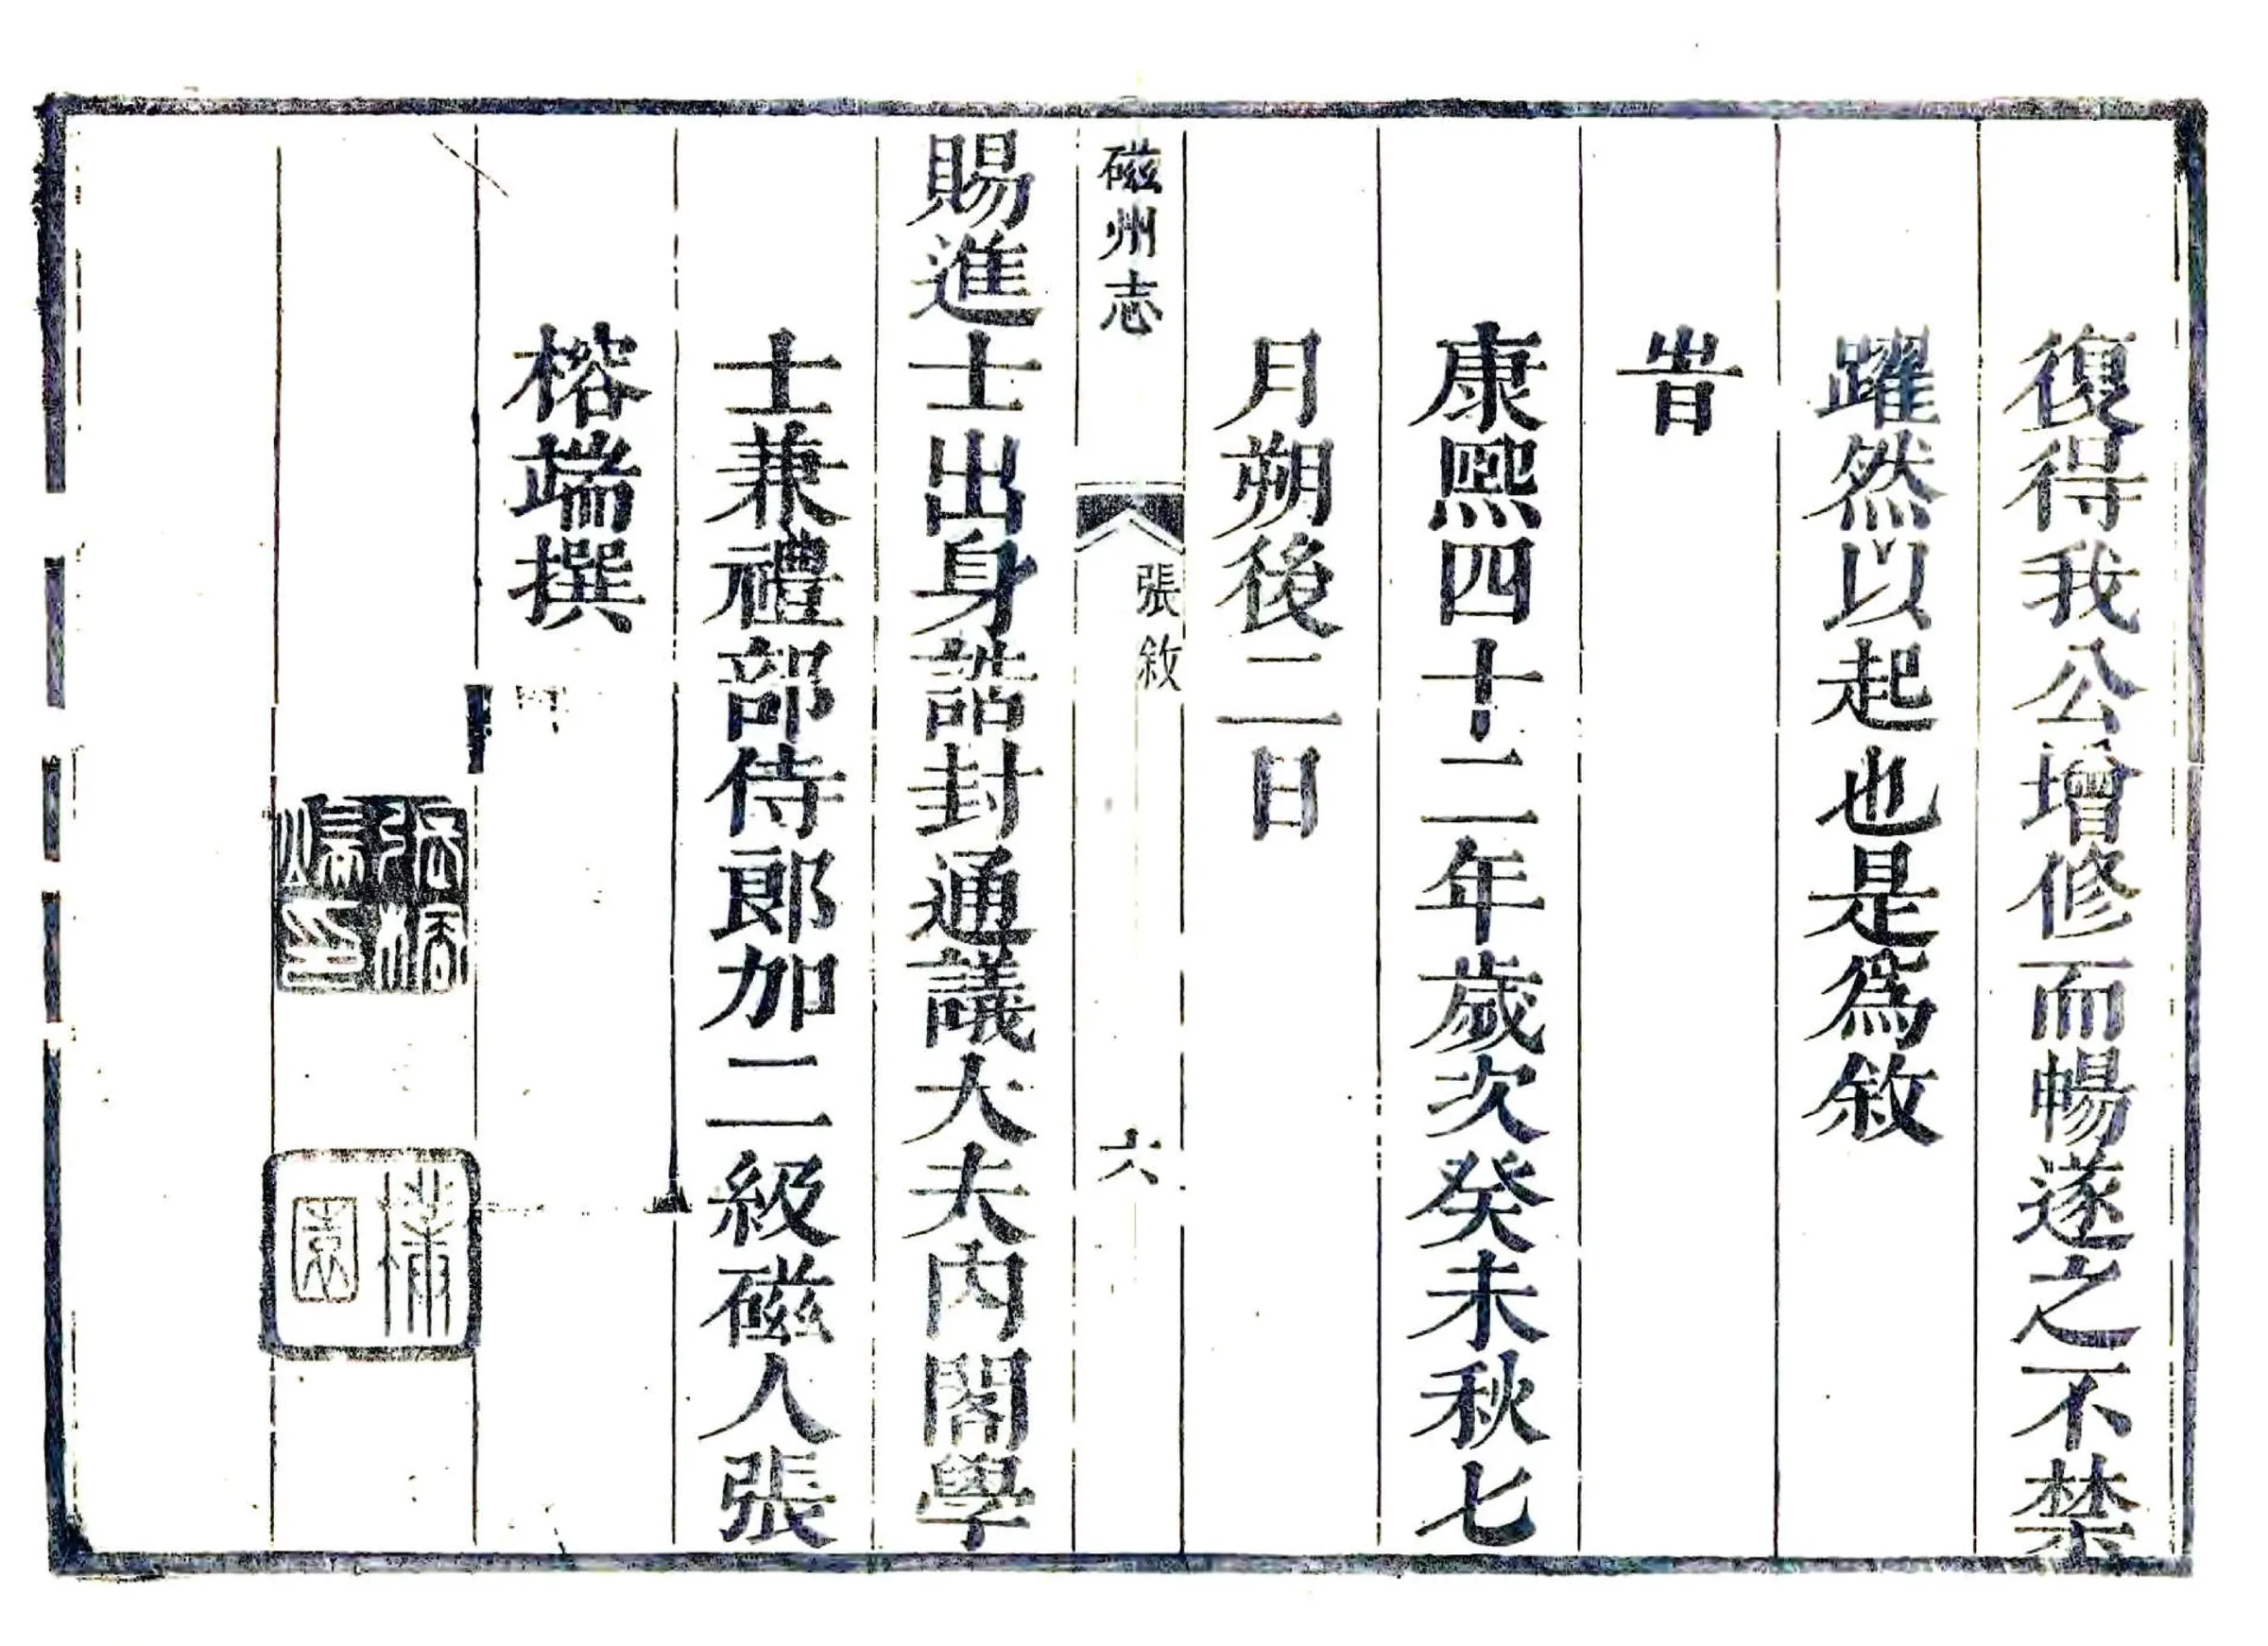 復得我公增修而暢遂之不禁
躍然以起也是爲敘
旹
康熙四十二年歲次癸未秋七
月朔後二日
磁州志
張敘
六
賜進士出身誥封通議大夫內閣學
士兼禮部侍郎加二級磁人張
榕端撰
張榕端印
樸園